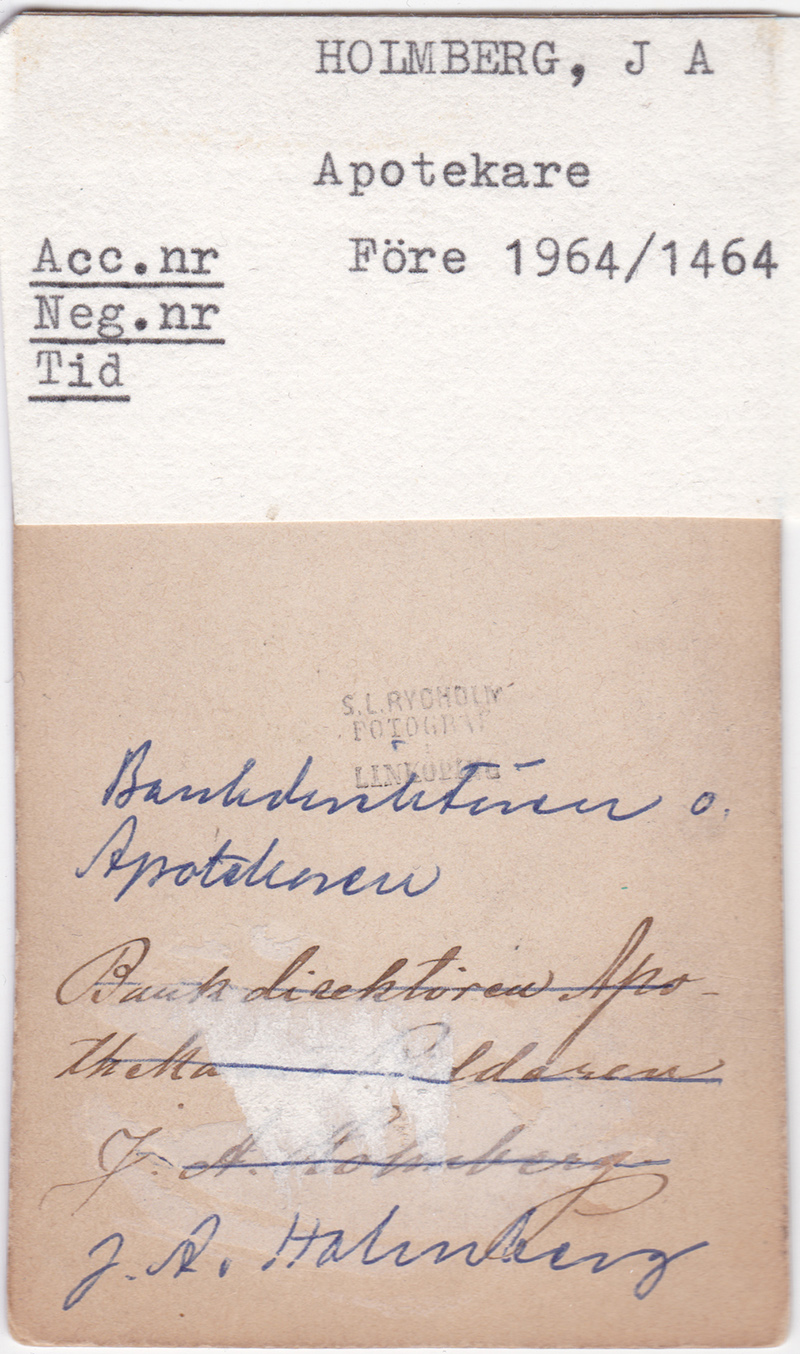 HOLMBERG, J A
Apotekare
Acc.nr Före 1964/1464
Neg.nr
Tid
S.L.RYDHOLM
FOTOGRAF
LINKÖPING
Bankdirektören o.
Apotekaren
Bankdirektören Apo-
theka
J. A. Holmberg
J. A. Holmberg